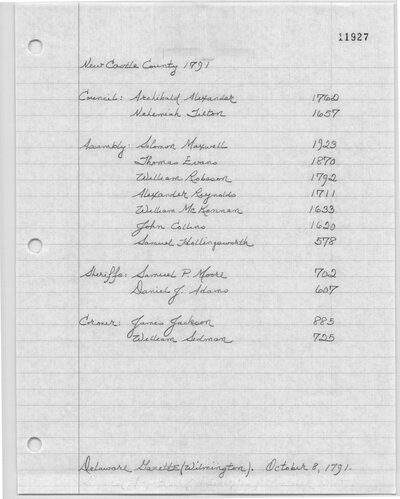 11927
New Castle County 1791
Council: Archibald Alexander 1762
Nehemiah Tilton 1657
Assembly: Solomon Maxwell 1923
Thomas Evans 1870
William Robeson 1792
Alexander Reynolds 1711
William McKennan 1633
John Collins 1620
Samuel Hollingsworth 578
Sheriffs: Samuel P. Moore 702
Daniel J. Adams 607
Coroner: James Jackson 885
William Sedman 725
Delaware Gazette (Wilmington). October 8, 1791.